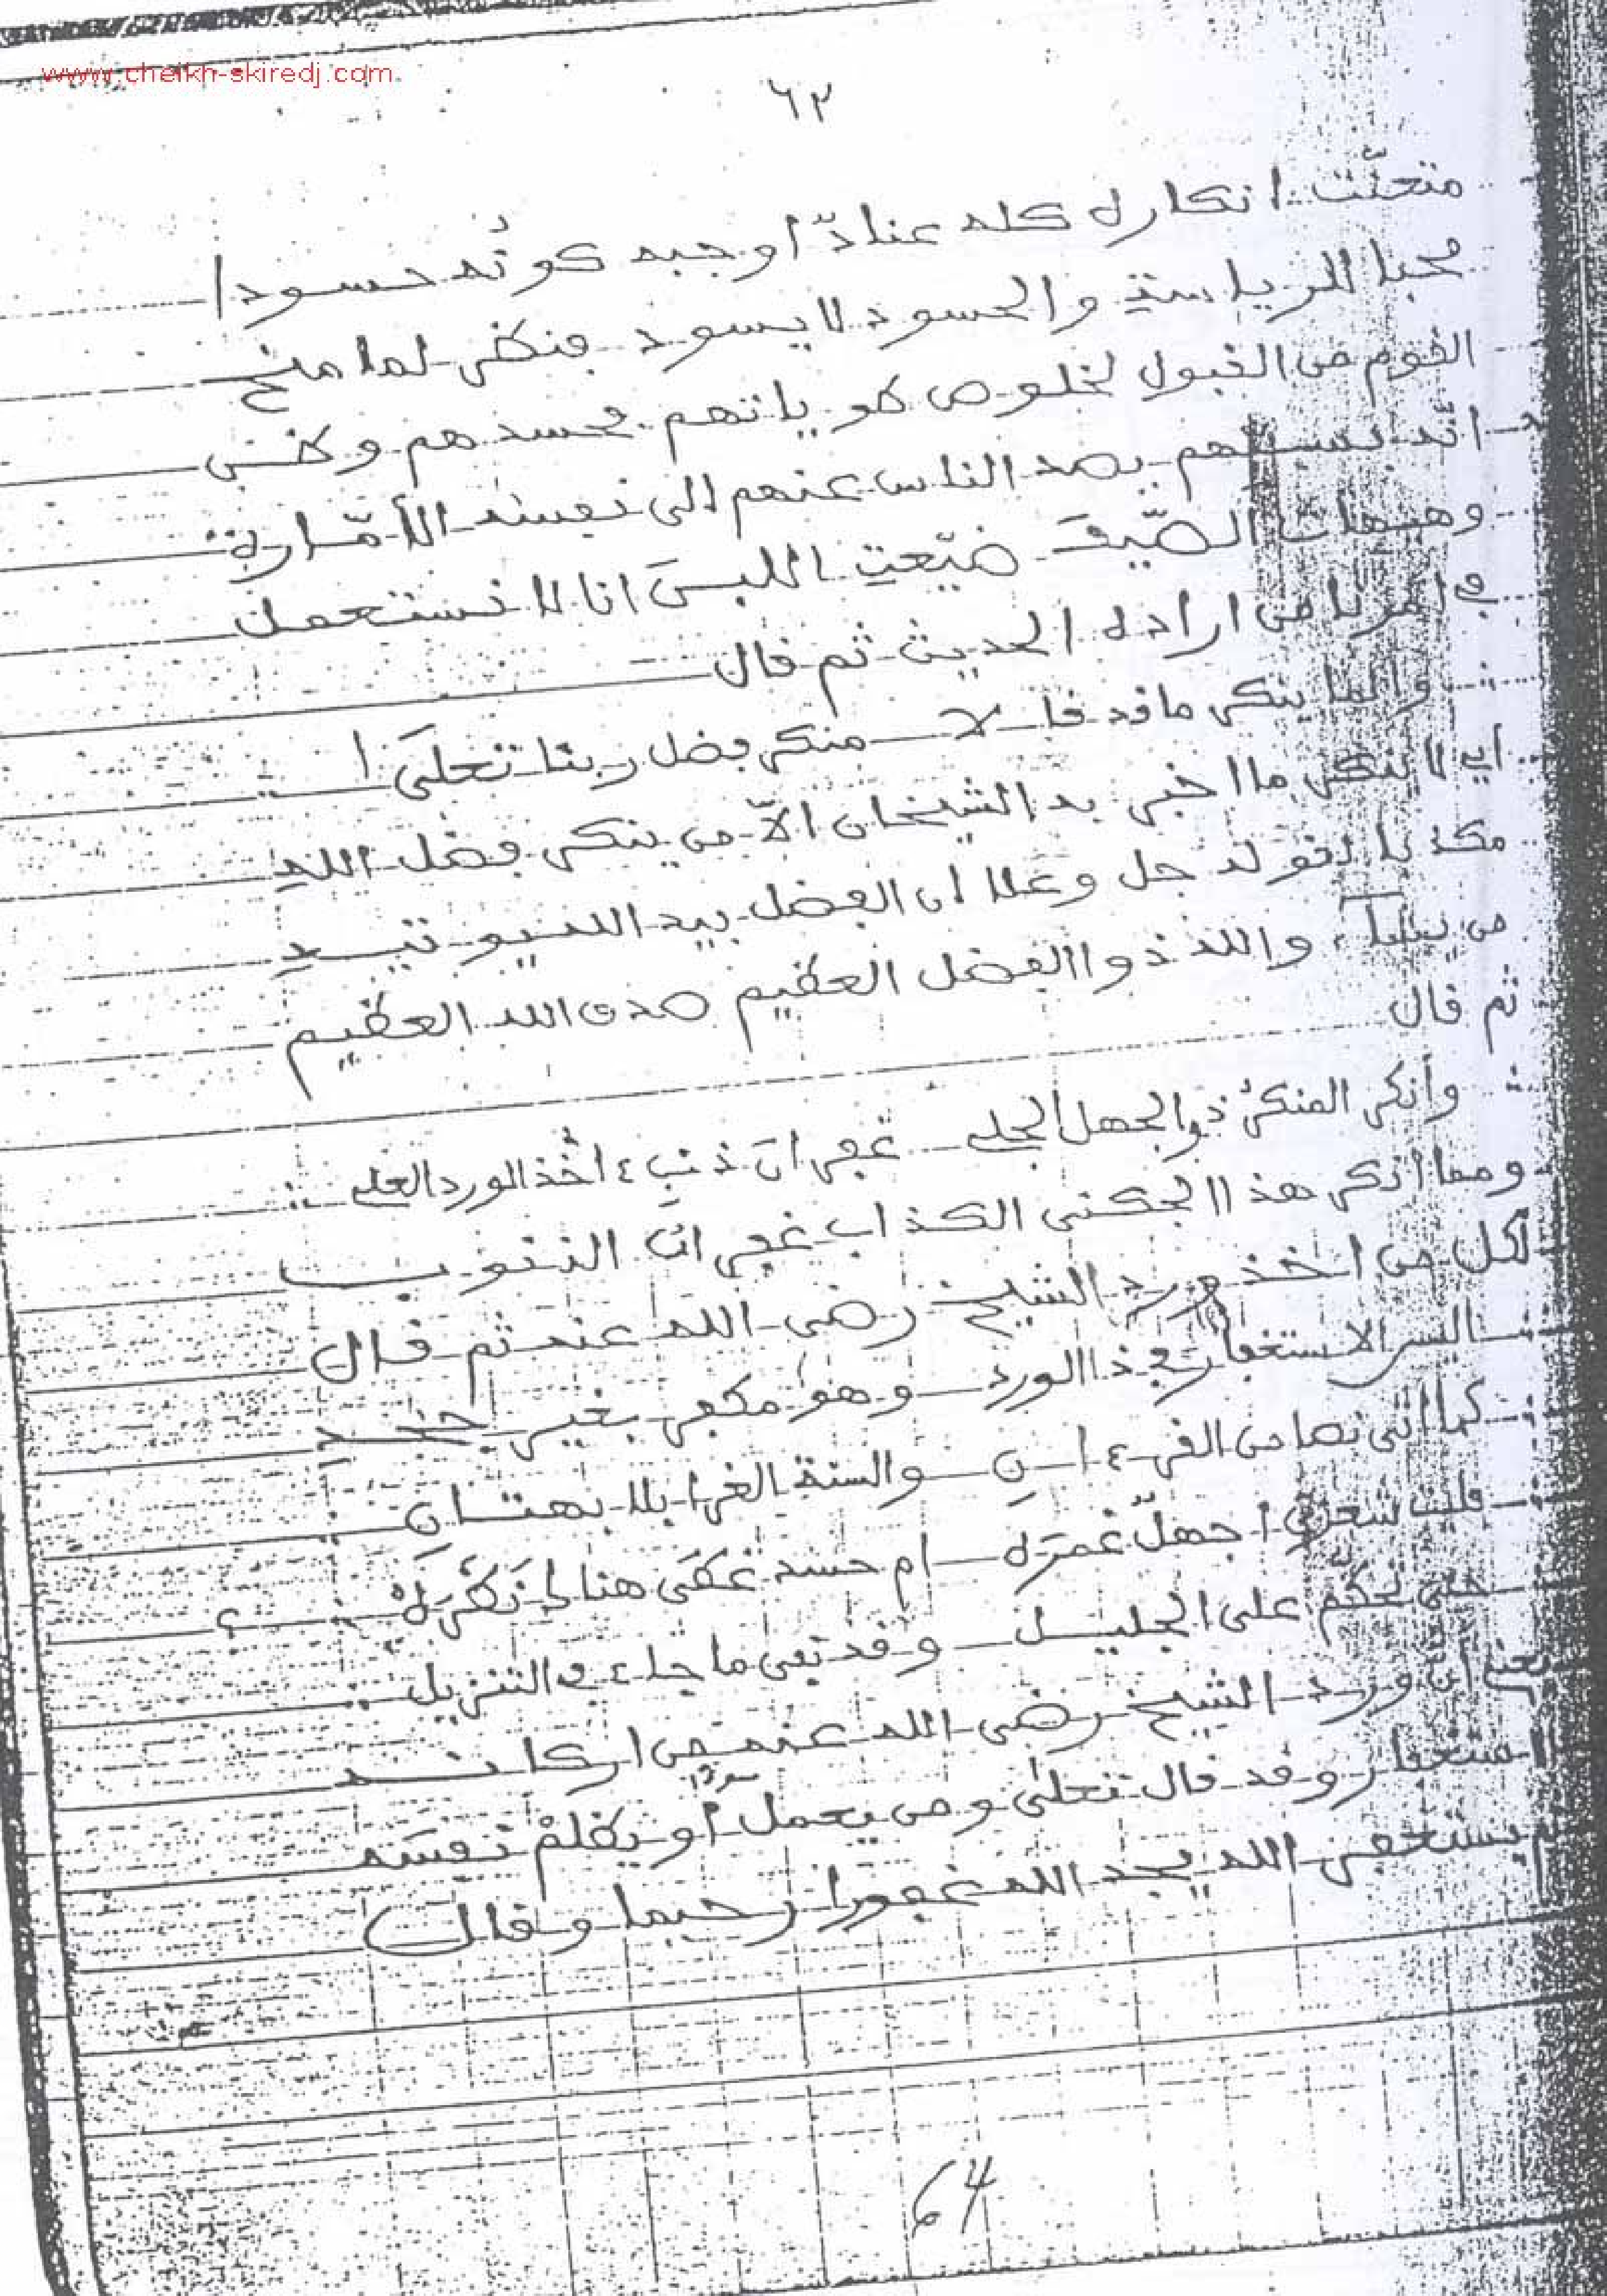 www.cheikh-skiredj.com
٦٢
متعنّت انكاره كله عنادٌ اوجبه كونُه حسودا
محبا للرياسة والحسود لا يسود فنظر لما منح
القوم من القبول لخلوص طوياتهم فحسدهم وظن
انّه بصد الناس عنهم الى نفسه الأمّارة
وهيهات الصّيفَ ضيّعتِ اللبنَ انا لا نستعمل
في امرنا من اراده الحديث ثم قال
وانما ينكر ما قد قالا منكر فضل ربنا تعلى
اي لا ينكر ما اخبر به الشيخان الاّ من ينكر فضل الله
مكذبا لقوله جل وعلا ان الفضل بيد الله يوتيه
من يشاء والله ذوا الفضل العظيم صدق الله العظيم
ثم قال
وأنكر المنكرُ ذو الجهل الجلي غفران ذنب ءاخذ الورد العلي
ومما انكر هذا الجكني الكذاب غفران الذنوب
لكل من اخذ ورد الشيخ رضي الله عنه ثم قال
اليس الاستغفار في ذا الورد وهو مكفر بغير جحد
كما اتى نصا من القرءان والسنة الغرا بلا بهتان
فليت شعري اجهلٌ غمره ام حسد غطى هنالِ نظره
حتى تحكّم على الجليل وقد نفى ما جاء في التنزيل
يعني أن ورد الشيخ رضي الله عنه من اركانه
الاستغفار وقد قال تعلى ومن يعمل سوءًا أو يظلمْ نفسَه
ثم يستغفر الله يجد الله غفورا رحيما وقال
64